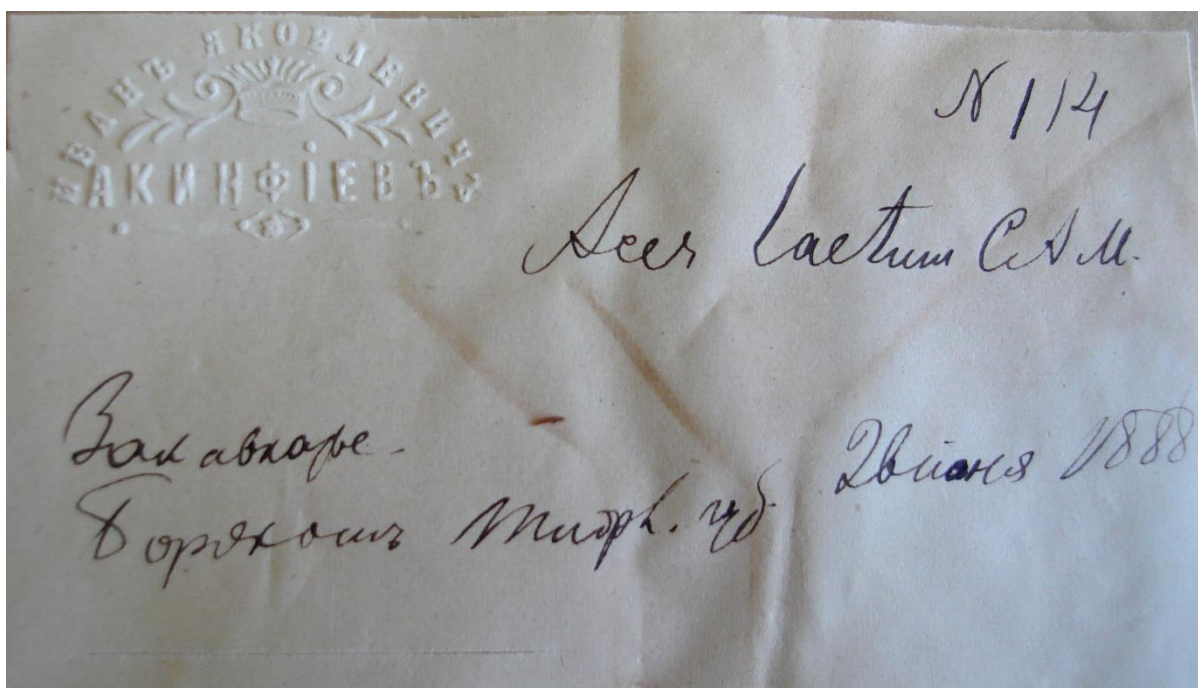 ИВАНЪ ЯКОВЛЕВИЧЪ
АКИНФІЕВЪ
N 114
Acer laetum C A M.
Закавказье.
Боржомъ Тифл. губ. 26 июня 1888